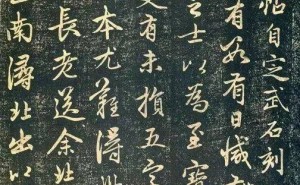 帖自定武石刻
有數有日減
之士以為至寶
又有未損五字
本尤難得此
長老送余北
南潯北出以